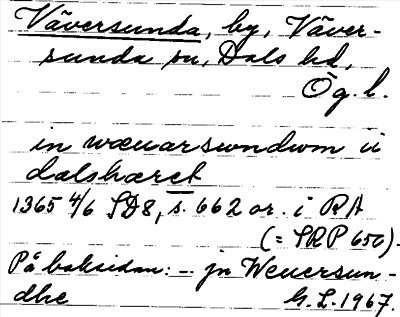 Väversunda, by, Väver-
sunda sn, Dals hd,
Ög. l.
in wæuarswndwm ii
dalshæret
1365 4/6 SD8, s. 662 or. i RA
(= SRP 650).
På baksidan: – jn Weuersun-
dhe G. L. 1967.